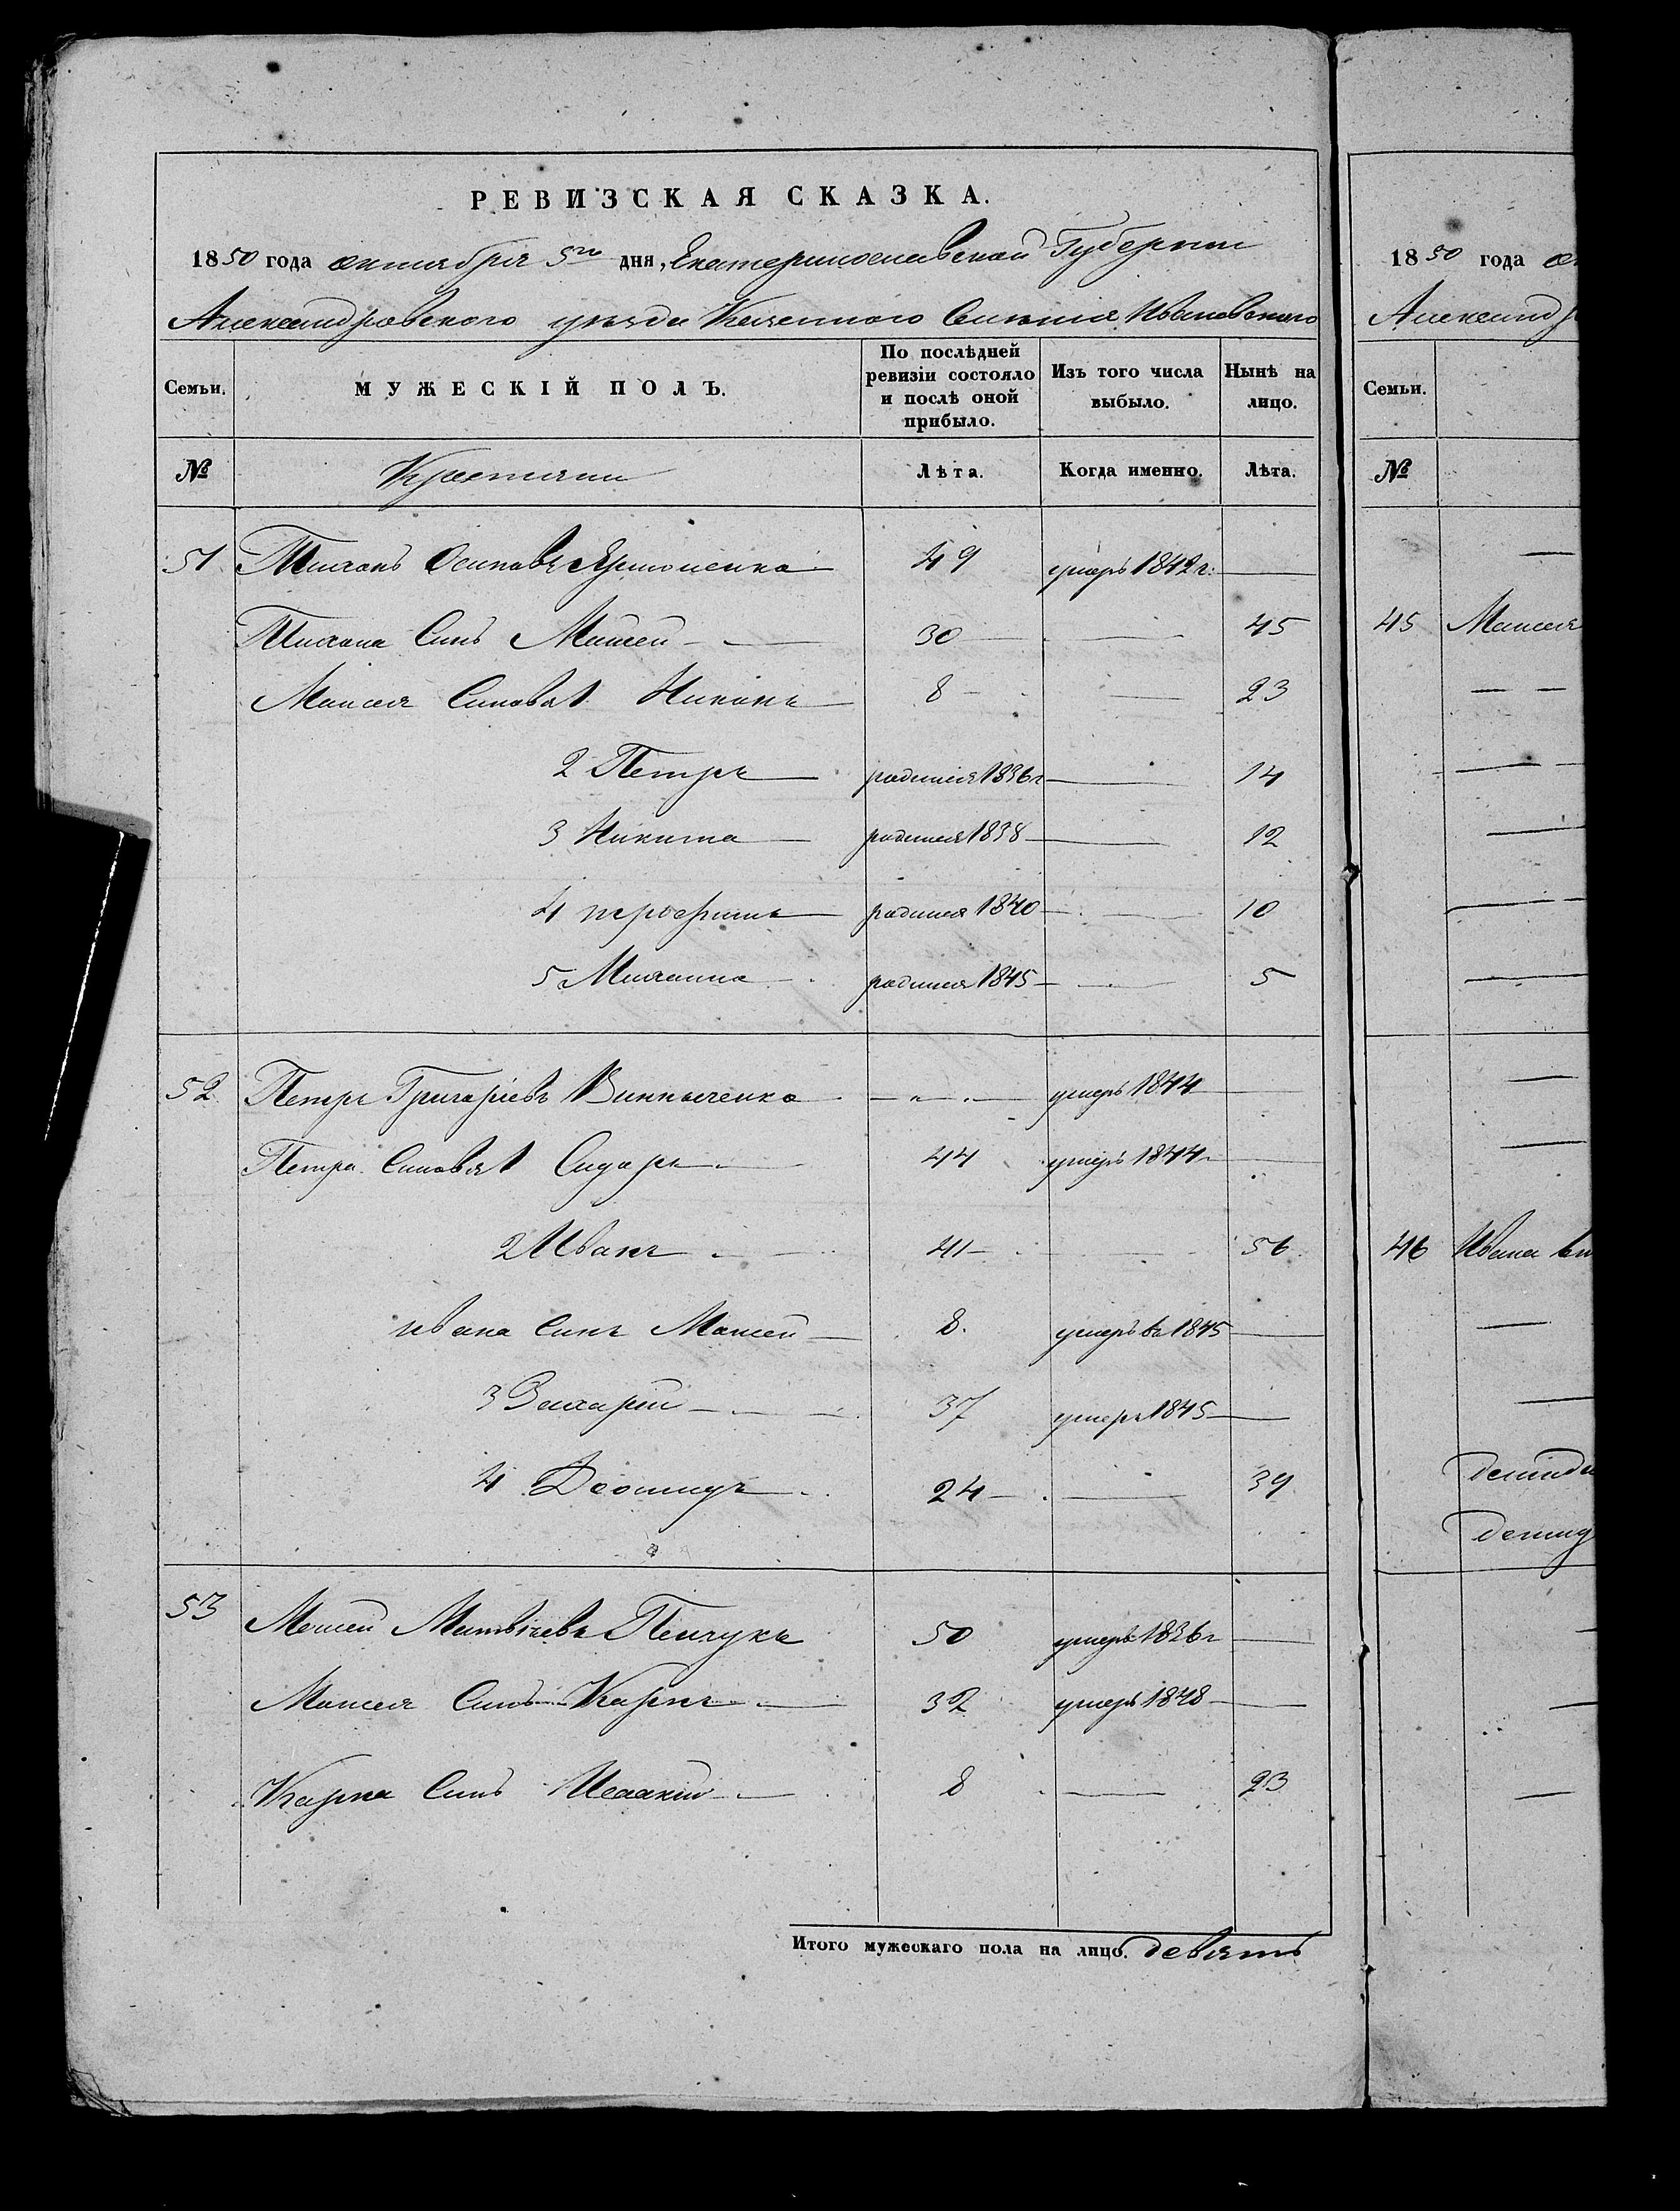 РЕВИЗСКАЯ СКАЗКА.
1850 года октября 5го дня, Екатеринославской Губернии
Александровского уезда Казенного Селения Ивановского
Семьи. МУЖЕСКІЙ ПОЛЪ. По послѣдней ревизіи состояло и послѣ оной прибыло. Изъ того числа выбыло. Нынѣ на лицо.
№ Крестяни Лѣта. Когда именно. Лѣта.
51 Тихонъ Осиповъ 49 умеръ 1842 г.
Тихона Синъ Мойсей 30 45
Моисея Синовя 1 Никонъ 8 23
2 Петръ родился 1836 г 14
3 Никита родился 1838 12
4 родился 1840 10
5 Михаила родился 1845 5
52 Петръ Григоріевъ Винниченко умеръ 1844
Петра Синовя 1 Сидоръ 44 умеръ 1844
2 Иванъ 41 56
Ивана Синъ Моисей 8. умеръ въ 1845
3 Захарій 37 умеръ 1845
4 24 39
53 Моисей Матвіевъ 50 умеръ 1836 г
Моисея Синъ Карпъ 32 умеръ 1848
Карпа Синъ Исаакій 8 23
Итого мужескаго пола на лицо. девять
1850 года
Семьи.
№
45 Моисея
46 Ивана